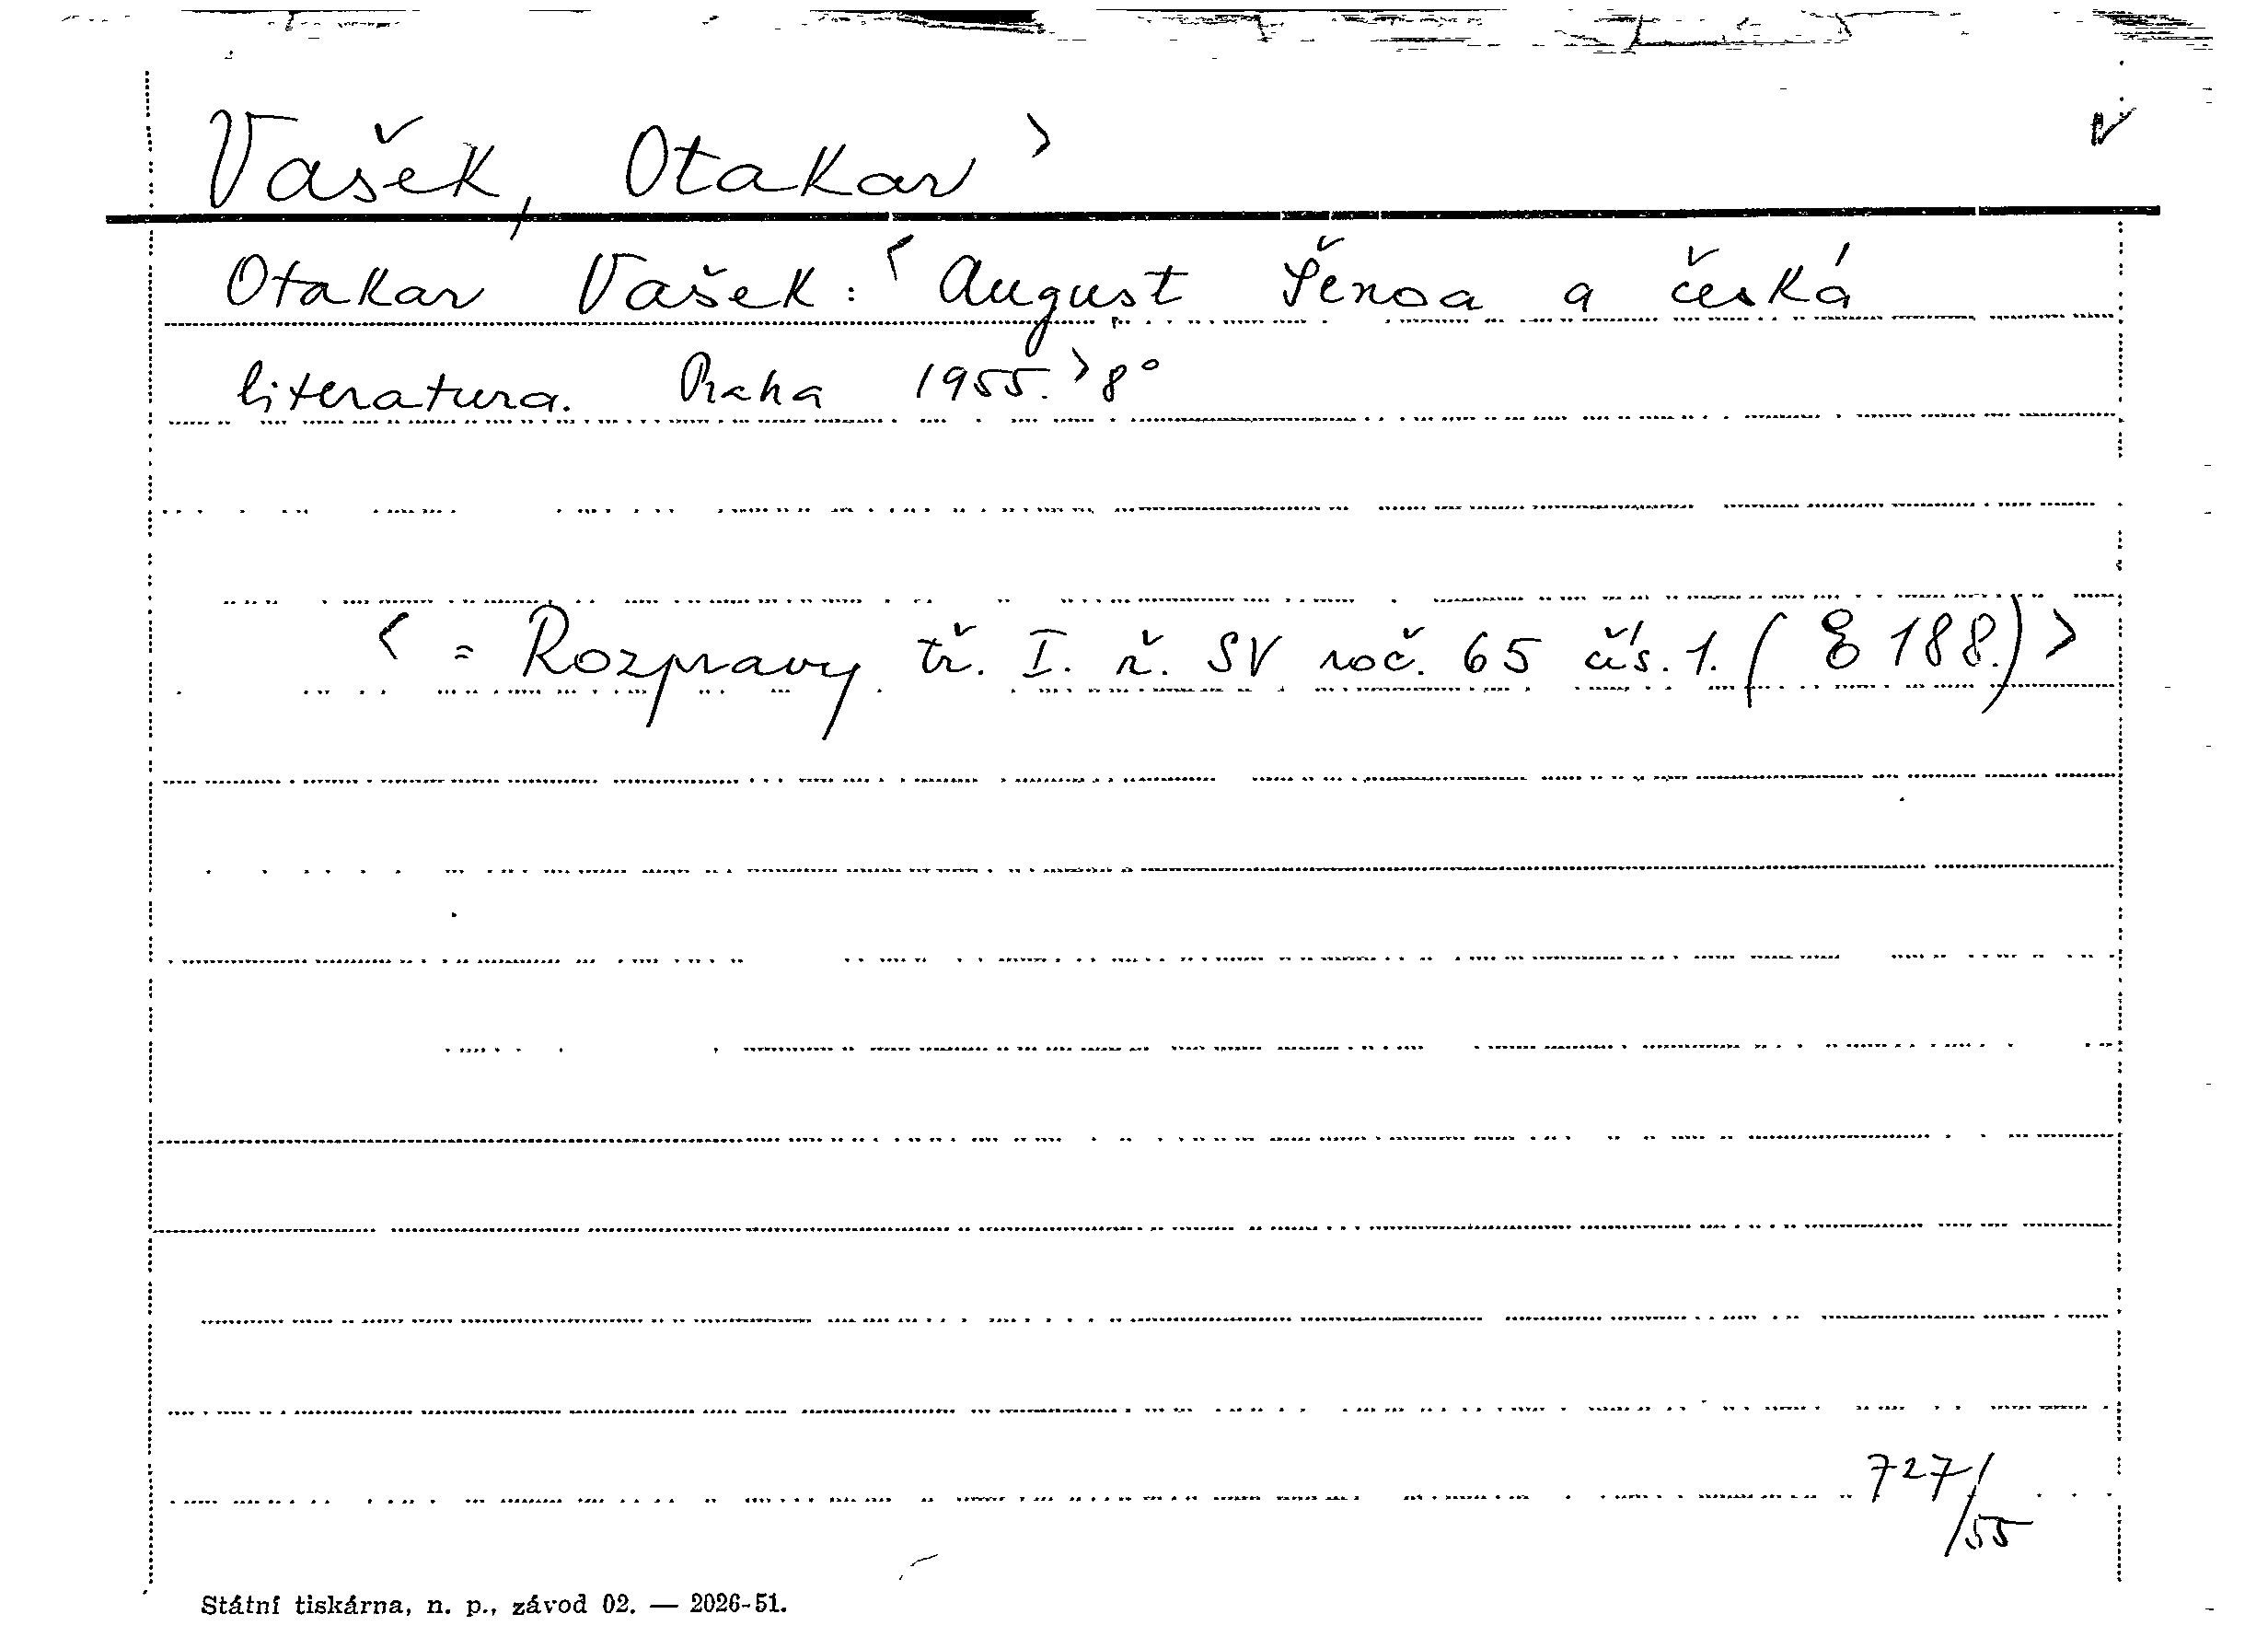 Vašek, Otakar > v
Otakar Vašek: < August Šenoa a česká
literatura. Praha 1955. > 8°
< = Rozpravy tř. I. ř. SV roč. 65 čís. 1. ( 188.) >
727/55
Státní tiskárna, n. p., závod 02. — 2026-51.